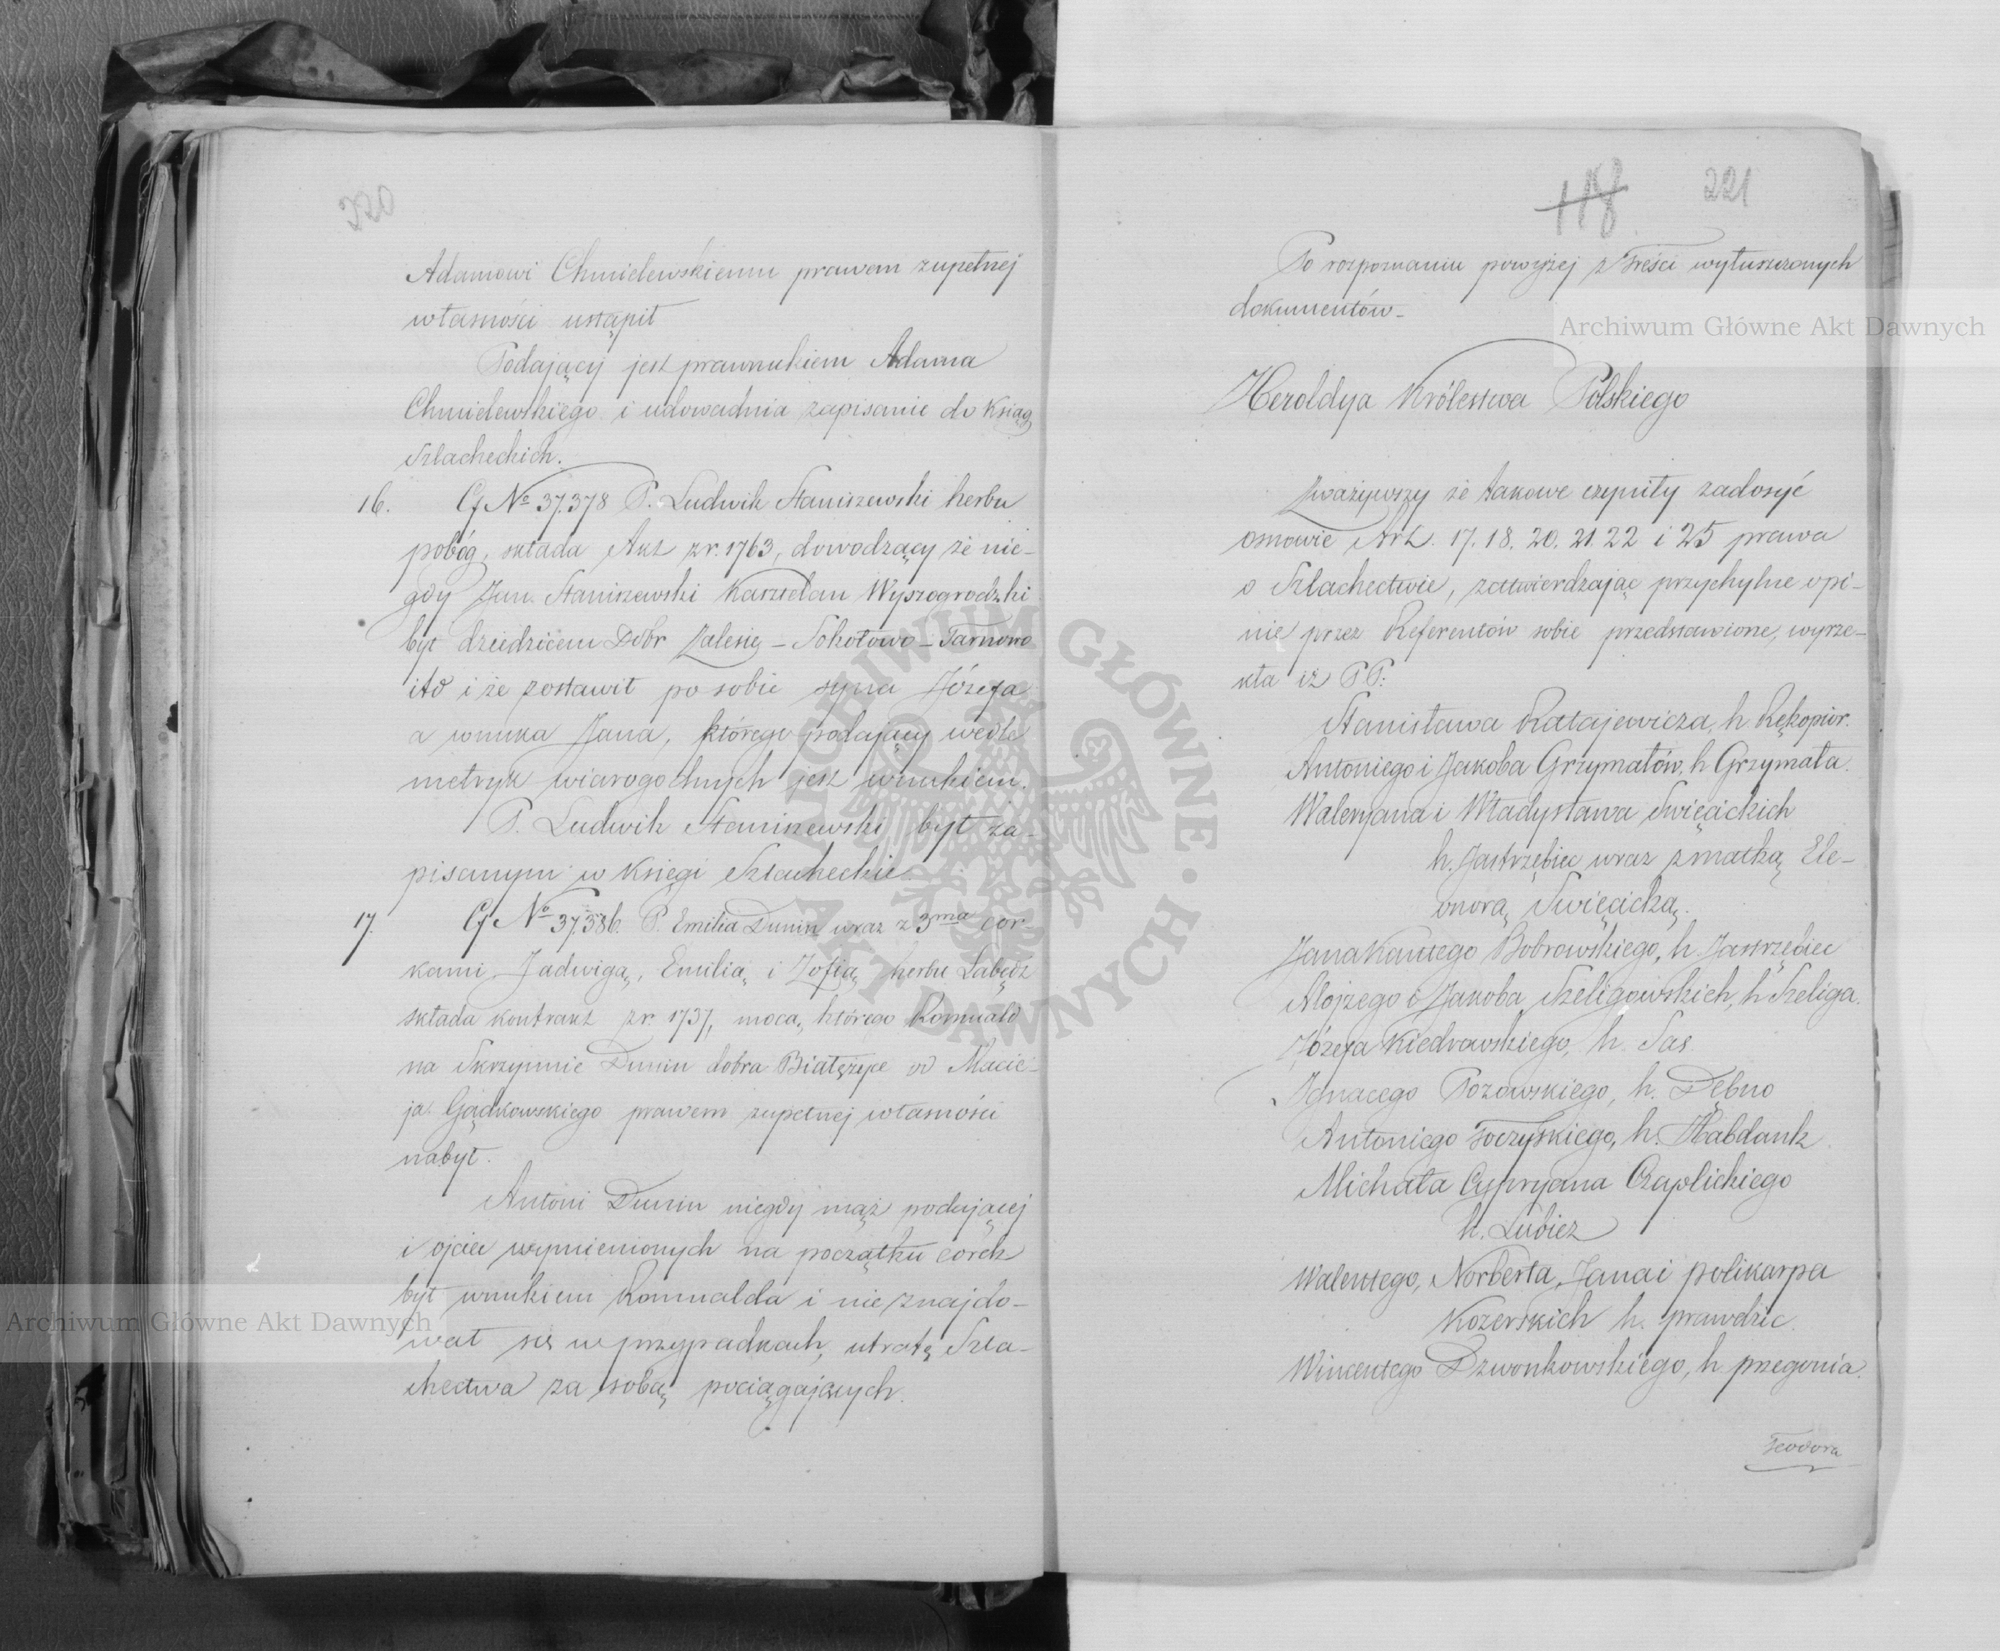 220
Adamowi Chmielewskiemu prawem zupełnej
własności ustąpił
Podający jest prawnukiem Adama
Chmielewskiego i udowadnia zapisanie do Ksiąg
Szlacheckich.
16. Cf No 37.378 P. Ludwik Staniszewski herbu
pobóg, składa Akt z r. 1763, dowodzący że nie-
gdy Jan Staniszewski Kasztelan Wyszogrodzki
był dziedzicem Dóbr Zalesie - Sokołowo - Tarnowo
itd i że zostawił po sobie syna Józefa
a wnuka Jana, którego podający wedle
metryk wiarogodnych jest wnukiem.
P. Ludwik Staniszewski był za-
pisanym w Księgi Szlacheckie
17. Cf No 37.386. P. Emilia Dunin wraz z 3ma cór-
kami Jadwigą, Emilią i Zofią herbu Łabędź
składa kontrakt z r. 1737, mocą którego Romuald
na Skrzynnie Dunin dobra od Macie-
ja Gądkowskiego prawem zupełnej własności
nabył.
Antoni Dunin niegdy mąż podającej
i ojciec wymienionych na początku córek
był wnukiem Romualda i nie znajdo-
wał się w przypadkach, utratę Szla-
chectwa za sobą pociągających.
118 221
Po rozpoznaniu powyżej z treści wyłuszczonych
dokumentów -
Heroldya Królestwa Polskiego
Zważywszy że takowe czyniły zadosyć
osnowie Art. 17. 18. 20. 21. 22 i 25 prawa
o Szlachectwie, zatwierdzając przychylne opi-
nie przez Referentów sobie przedstawione, wyrze-
kła iż PP:
Stanisława Ratajewicza, h
Antoniego i Jakoba Grzymałów, h Grzymała.
Waleryana i Władysława Święcickich
h. Jastrzębiec wraz z matką Ele-
onorą Święcicką.
Jana Kantego Bobrowskiego, h. Jastrzębiec
Alojzego i Jakoba Szeligowskich, h Szeliga.
Józefa Kiedrowskiego, h. Sas.
Ignacego Pozowskiego, h. Dębno
Antoniego Toczyskiego, h. Habdank
Michała Cypryana Czaplickiego
h. Lubicz
Walentego, Norberta, Jana i polikarpa
Kozerskich h. prawdzic.
Wincentego Dzwonkowskiego, h przegonia.
Teodora
Archiwum Główne Akt Dawnych
Archiwum Główne Akt Dawnych
ARCHIWUM GŁÓWNE AKT DAWNYCH